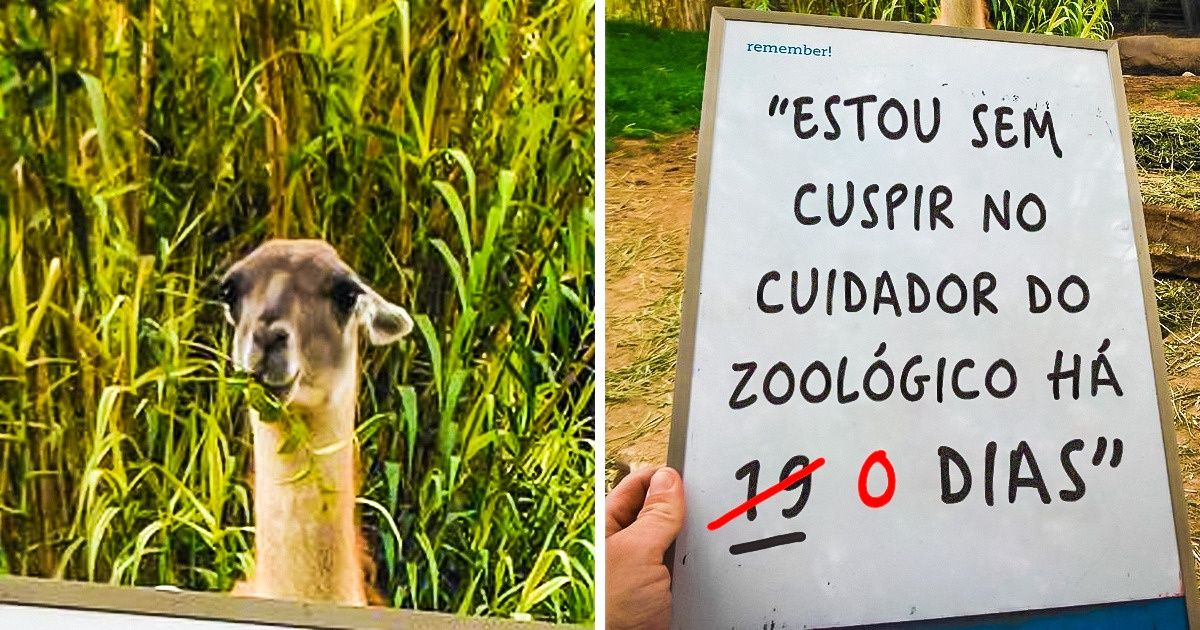 remember!
"ESTOU SEM
CUSPIR NO
CUIDADOR DO
ZOOLÓGICO HÁ
19 0 DIAS"